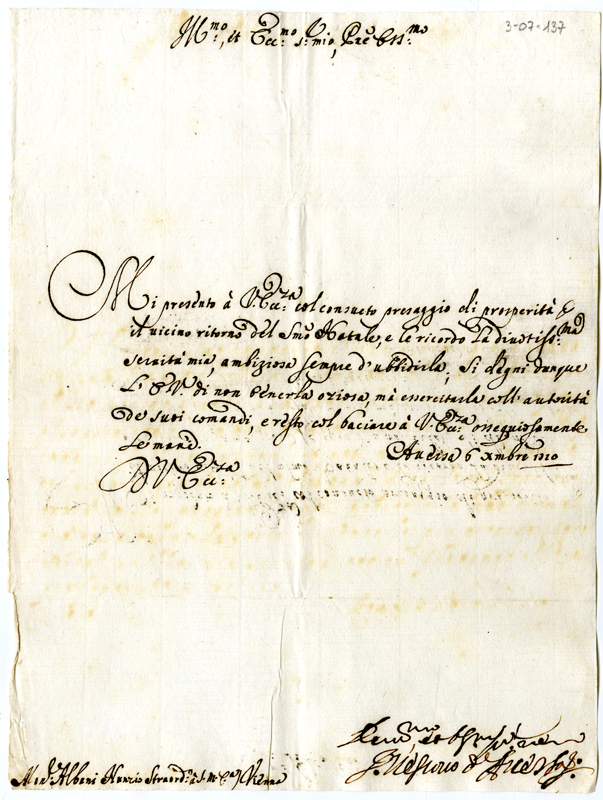 3-07-137
Ill.mo, et Ecc.mo S.r mio, Prẽ Oss.mo
Mi presento à V. Ecc.za col consueto presaggio di prosperità p
il uicino ritorno del Smo Natale, e le ricordo la diuotiss.ma
seruità mia, ambiziosa sempre d'ubbidirla; Si degni dunque
L' E. V. di non tenerla oziosa, mà essercitarla coll' autorità
de suoi comandi, e resto col baciare à V. Ecc.za ossequiosamente
le mani.
Anersa 6 Xmbre 1710
D V. Ecc.za
Deuo.mo et
Mon.r Albani Nunzio Straord.o à S. M. C. Vienna